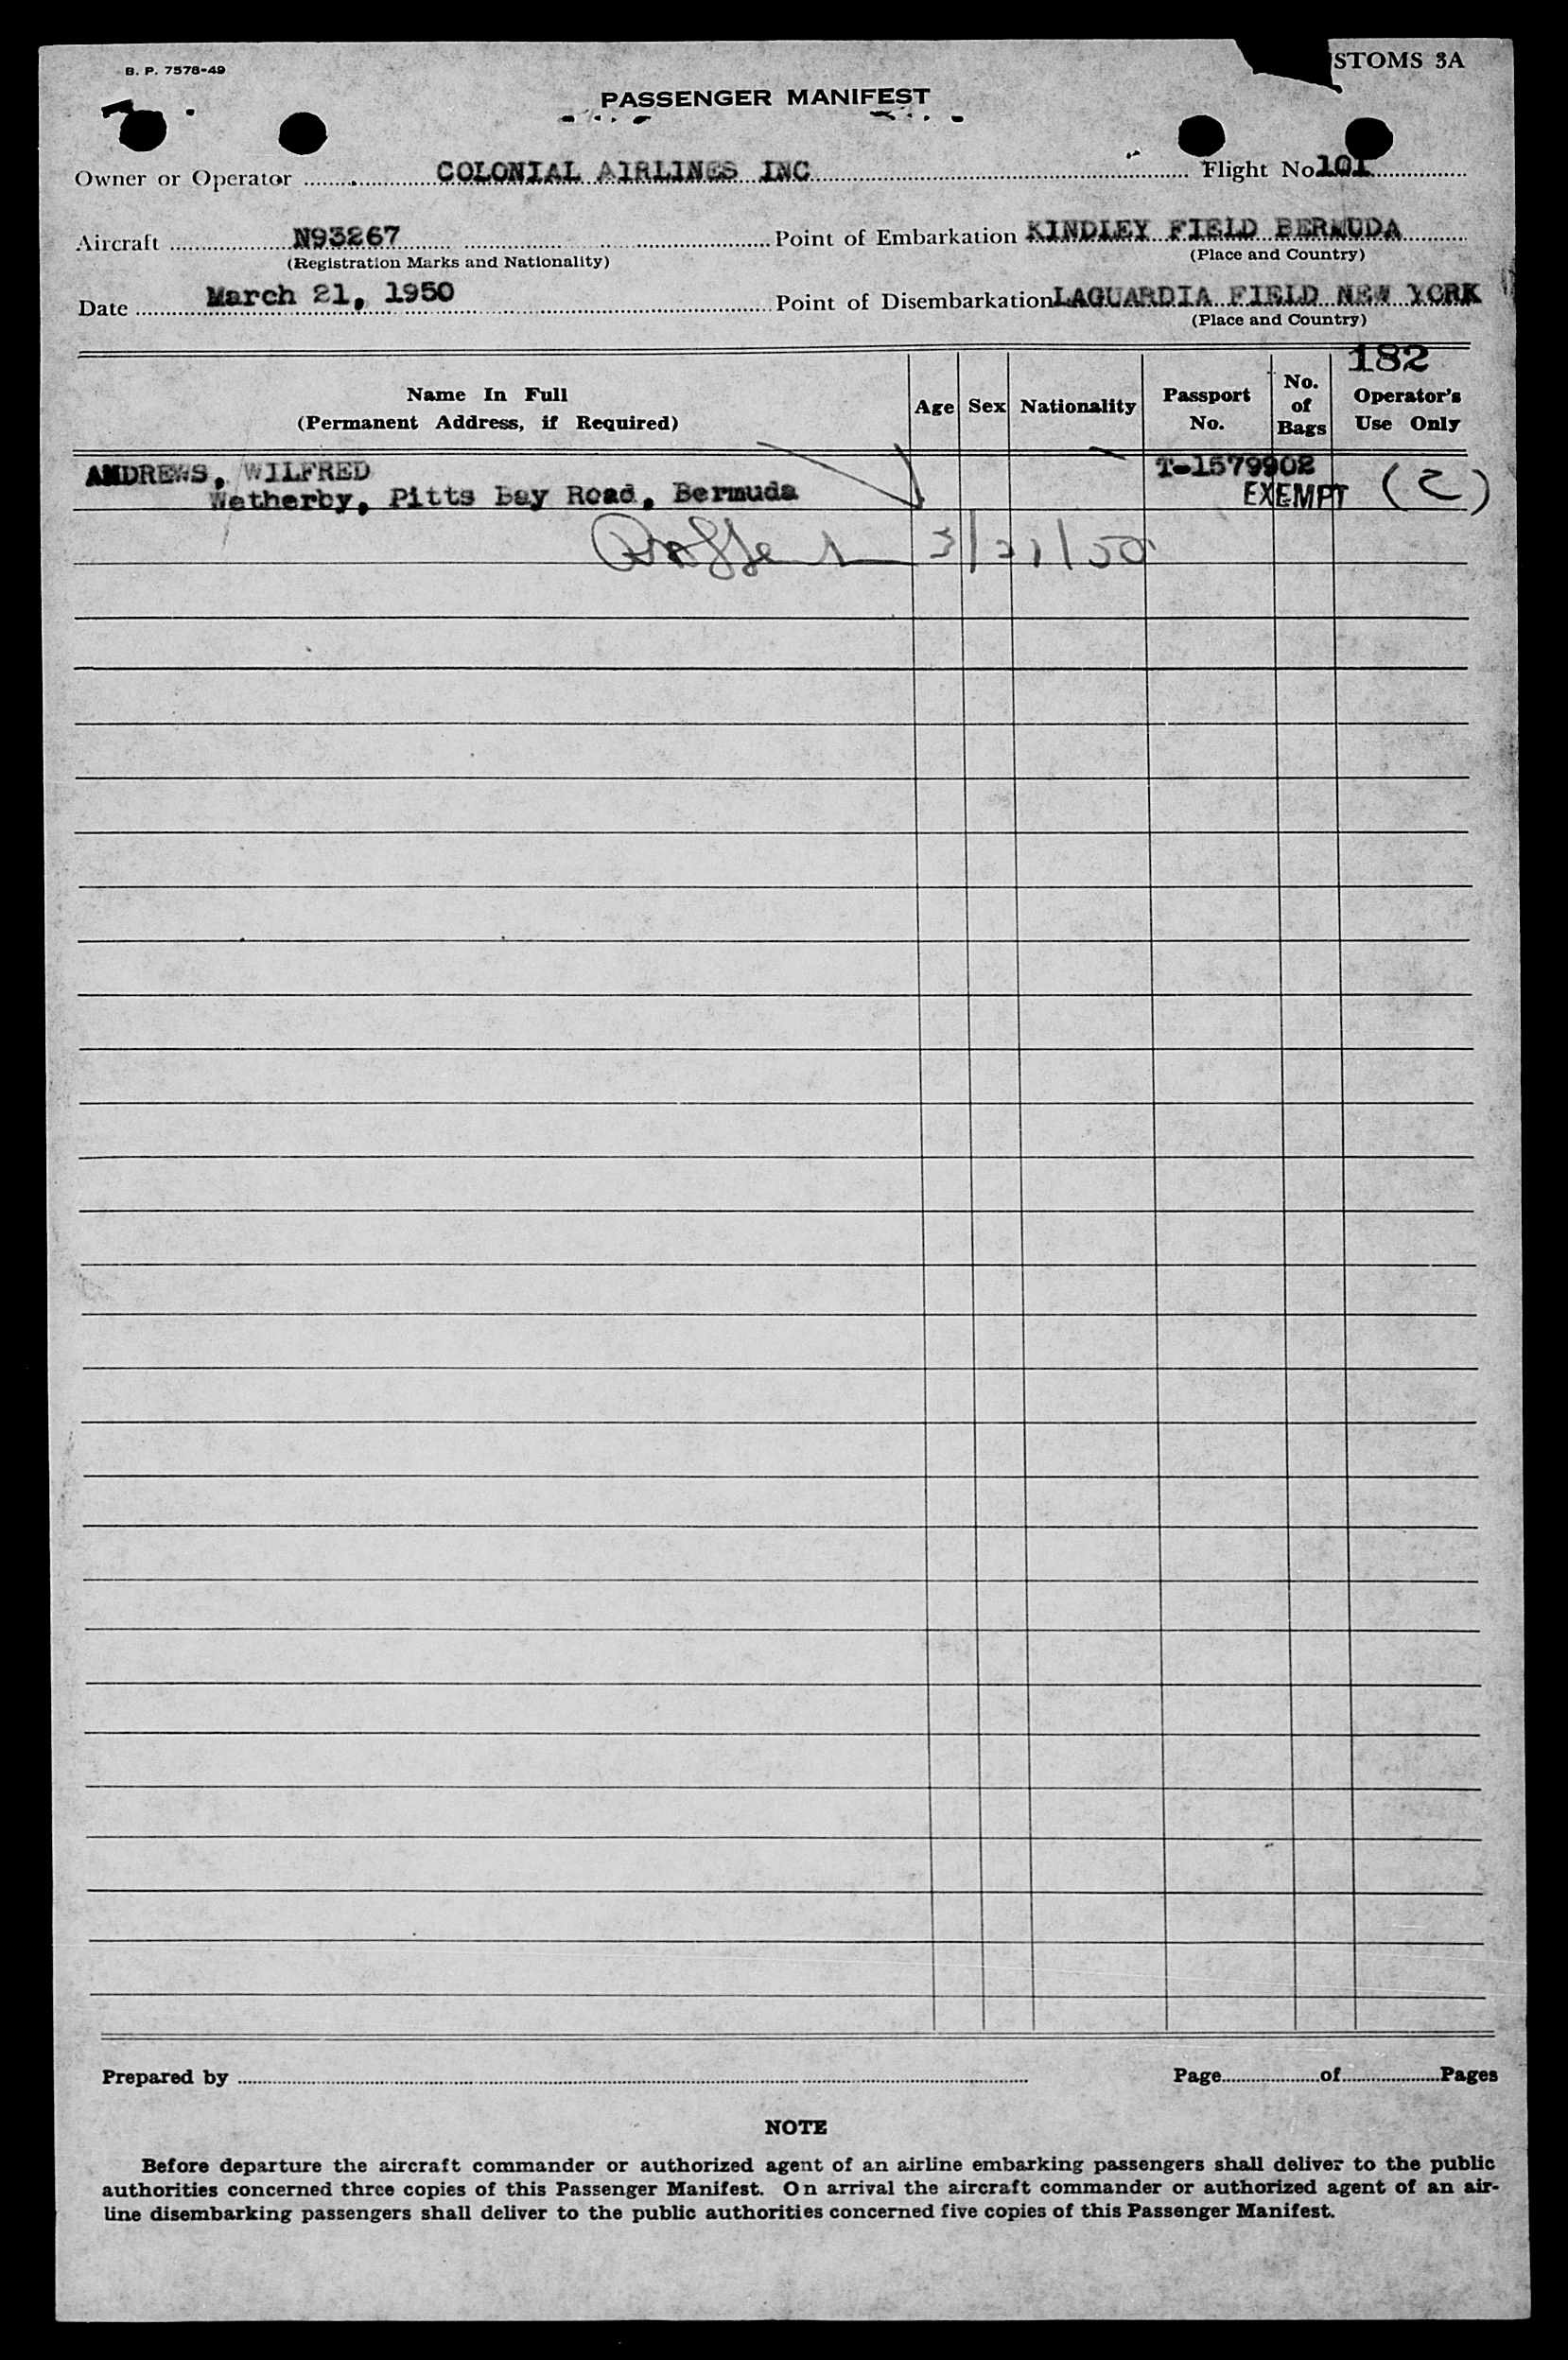 B. P. 7578-49
STOMS 3A
PASSENGER MANIFEST
Owner or Operator COLONIAL AIRLINES INC Flight No 101
Aircraft N93267 Point of Embarkation KINDLEY FIELD BERMUDA
(Registration Marks and Nationality) (Place and Country)
Date March 21, 1950 Point of Disembarkation LAGUARDIA FIELD NEW YORK
(Place and Country)
182
Name In Full (Permanent Address, if Required) Age Sex Nationality Passport No. No. of Bags Operator's Use Only
ANDREWS, WILFRED T-1579902
Wetherby, Pitts Bay Road, Bermuda EXEMPT (2)
3/21/50
Prepared by Page of Pages
NOTE
Before departure the aircraft commander or authorized agent of an airline embarking passengers shall deliver to the public
authorities concerned three copies of this Passenger Manifest. On arrival the aircraft commander or authorized agent of an air-
line disembarking passengers shall deliver to the public authorities concerned five copies of this Passenger Manifest.